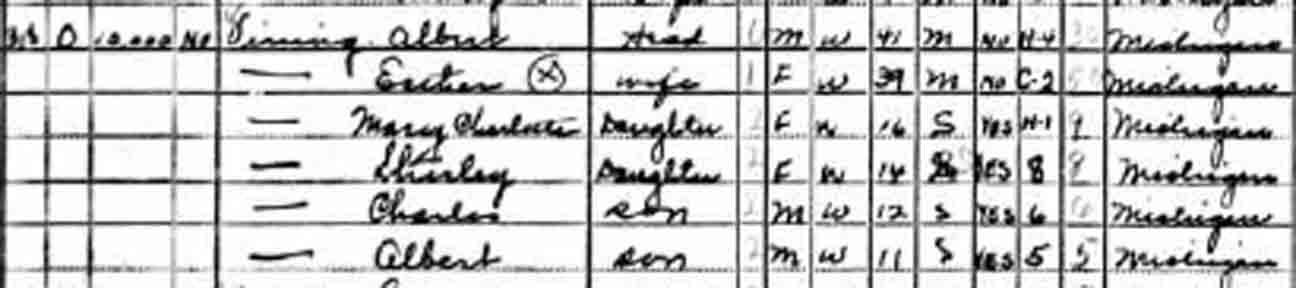 O 10,000 No Vining Albert Head M W 41 M No H-4 Michigan
— Esther (X) wife F W 39 M No C-2 Michigan
— Mary Charlotte Daughter F W 16 S Yes H-1 9 Michigan
— Shirley Daughter F W 14 S Yes 8 8 Michigan
— Charles son M W 12 S Yes 6 6 Michigan
— Albert son M W 11 S Yes 5 5 Michigan